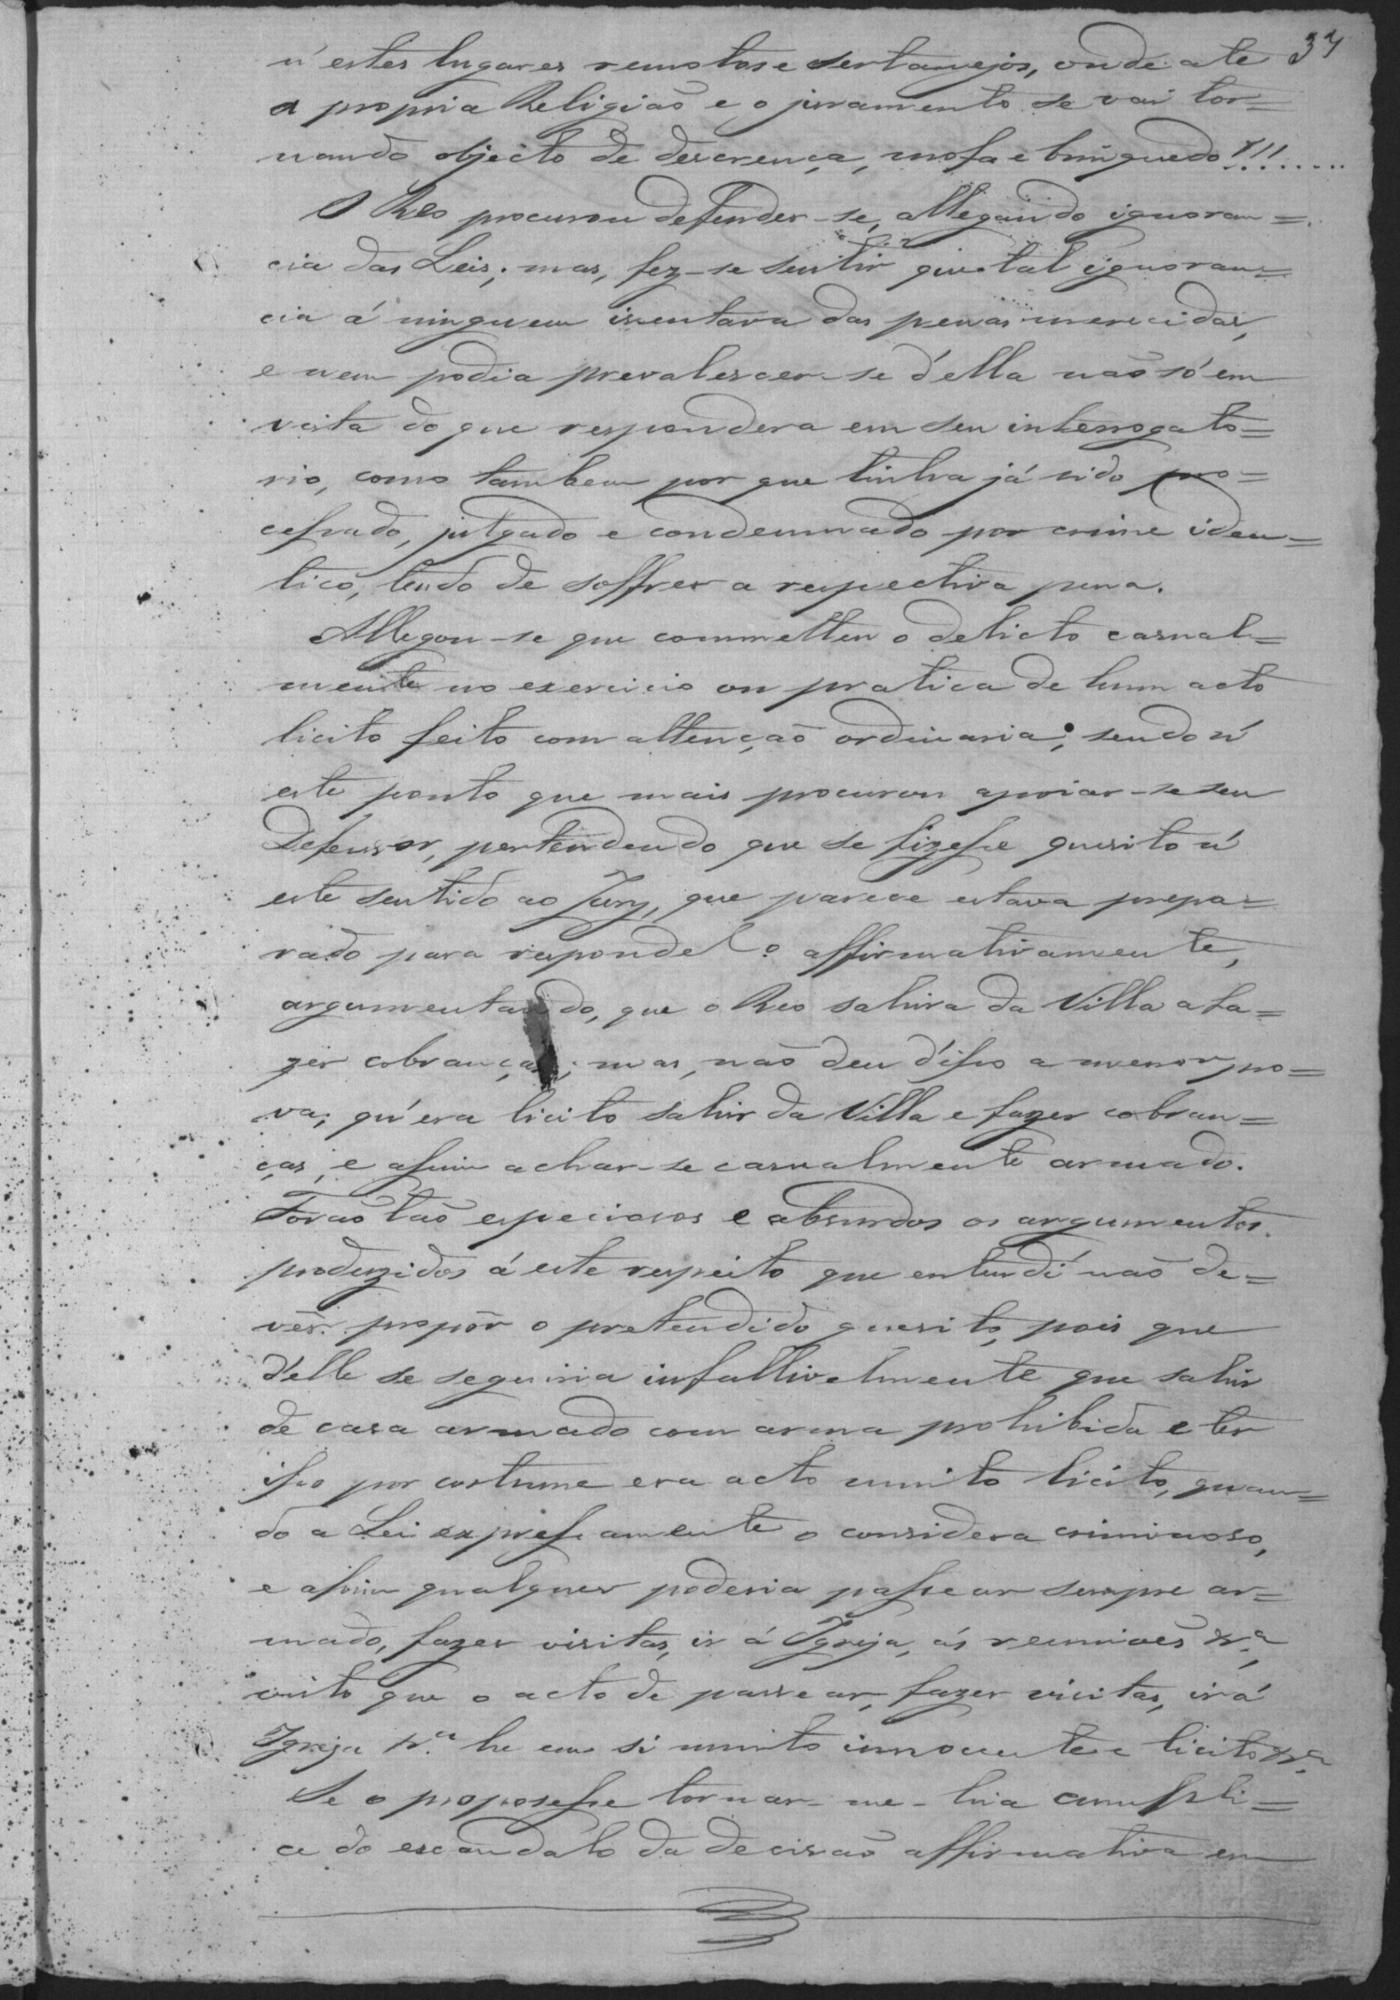 37
n'estes lugares remotos e sertanejos, onde até
a propria Religião e o juramento se vai tor=
nando objecto de descrença, mofa e brinquedo!!!......
O Reo procurou defender-se, allegando ignoran=
cia das Leis; mas, fez-se sentir que tal ignoran=
cia á ninguem isentava das penas merecidas,
e nem podia prevalescer-se d'ella não só em
vista do que respondera em seu interrogato=
rio, como tambem por que tinha já sido pro=
cessado, julgado e condemnado por crime iden=
tico, tendo de soffrer a respectiva pena.
Allegou-se que commetteu o delicto casual=
mente no exercicio ou pratica de hum acto
licito feito com attenção ordinaria; sendo n'
este ponto que mais procurou apoiar-se seu
Defensor, pertendendo que se fizesse quesito n'
este sentido ao Jury, que parece estava prepa=
rado para respondel-o affirmativamente,
argumentando, que o Reo sahira da Villa a fa=
zer cobranças; mas, não deu d'isso a menor pro=
va; qu'era licito sahir da Villa e fazer cobran=
ças, e assim achar-se casualmente armado.
Forão tão especiosos e absurdos os argumentos
produzidos á este respeito que entendi não de=
vêr propôr o pretendido quesito, pois que
d'elle se seguiria infallivelmente que sahir
de casa armado com arma prohibida e ter
isso por costume era acto muito licito, quan=
do a Lei expressamente o considera criminoso,
e assim qualquer poderia passear sempre ar=
mado, fazer visitas, ir á Igreja, ás reuniões &.ª,
visto que o acto de passear, fazer visitas, ir á
Igreja &.ª he em si muito innocente e licito &.ª
Se o proposesse tornar-me-hia cumpli=
ce do escandalo da decisão affirmativa em